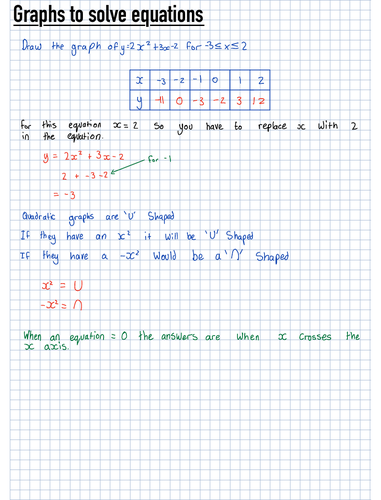 Graphs to solve equations
Draw the graph of y=2x²+3x-2 for -3≤x≤2
x -3 -2 -1 0 1 2
y -11 0 -3 -2 3 12
for this equation x=2 so you have to replace x with 2
in the equation.
y = 2x²+3x-2
for -1
2 + -3-2
= -3
Quadratic graphs are 'U' Shaped
If they have an x² it will be 'U' Shaped
If they have a -x² would be a '∩' Shaped
x² = U
-x² = ∩
When an equation = 0 the answers are when x crosses the
x axis.